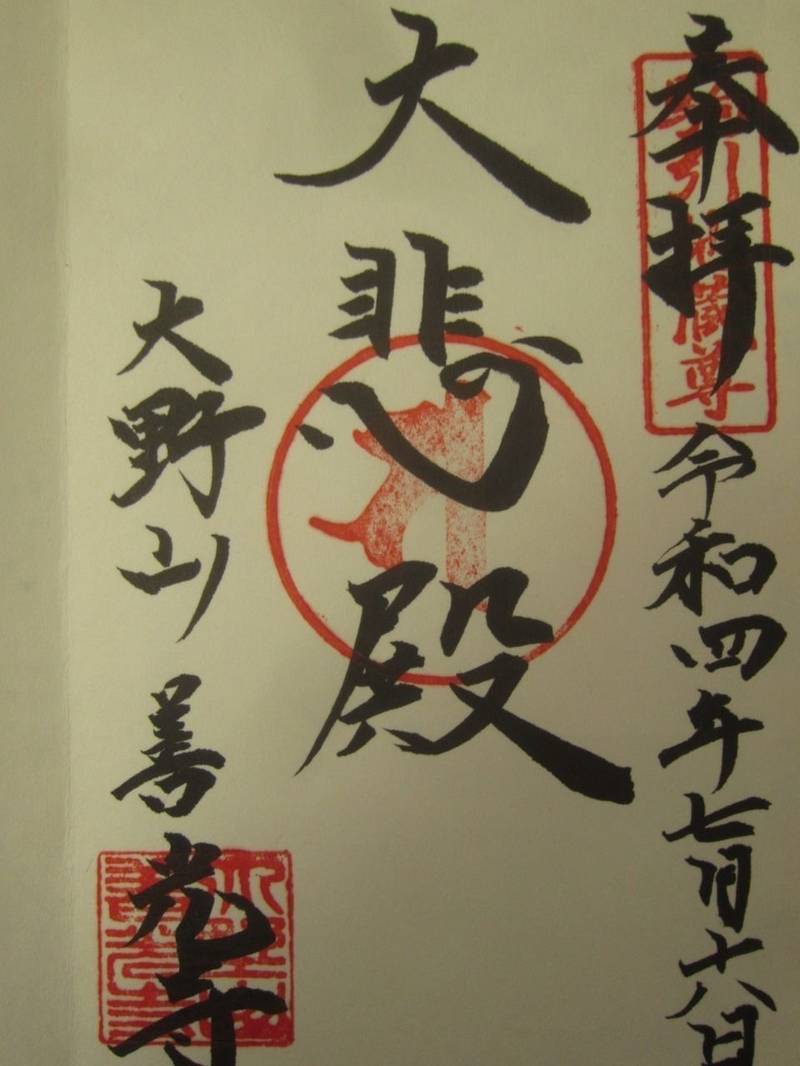 奉拝
令和四年七月十八日
大悲殿
大野山 善光寺